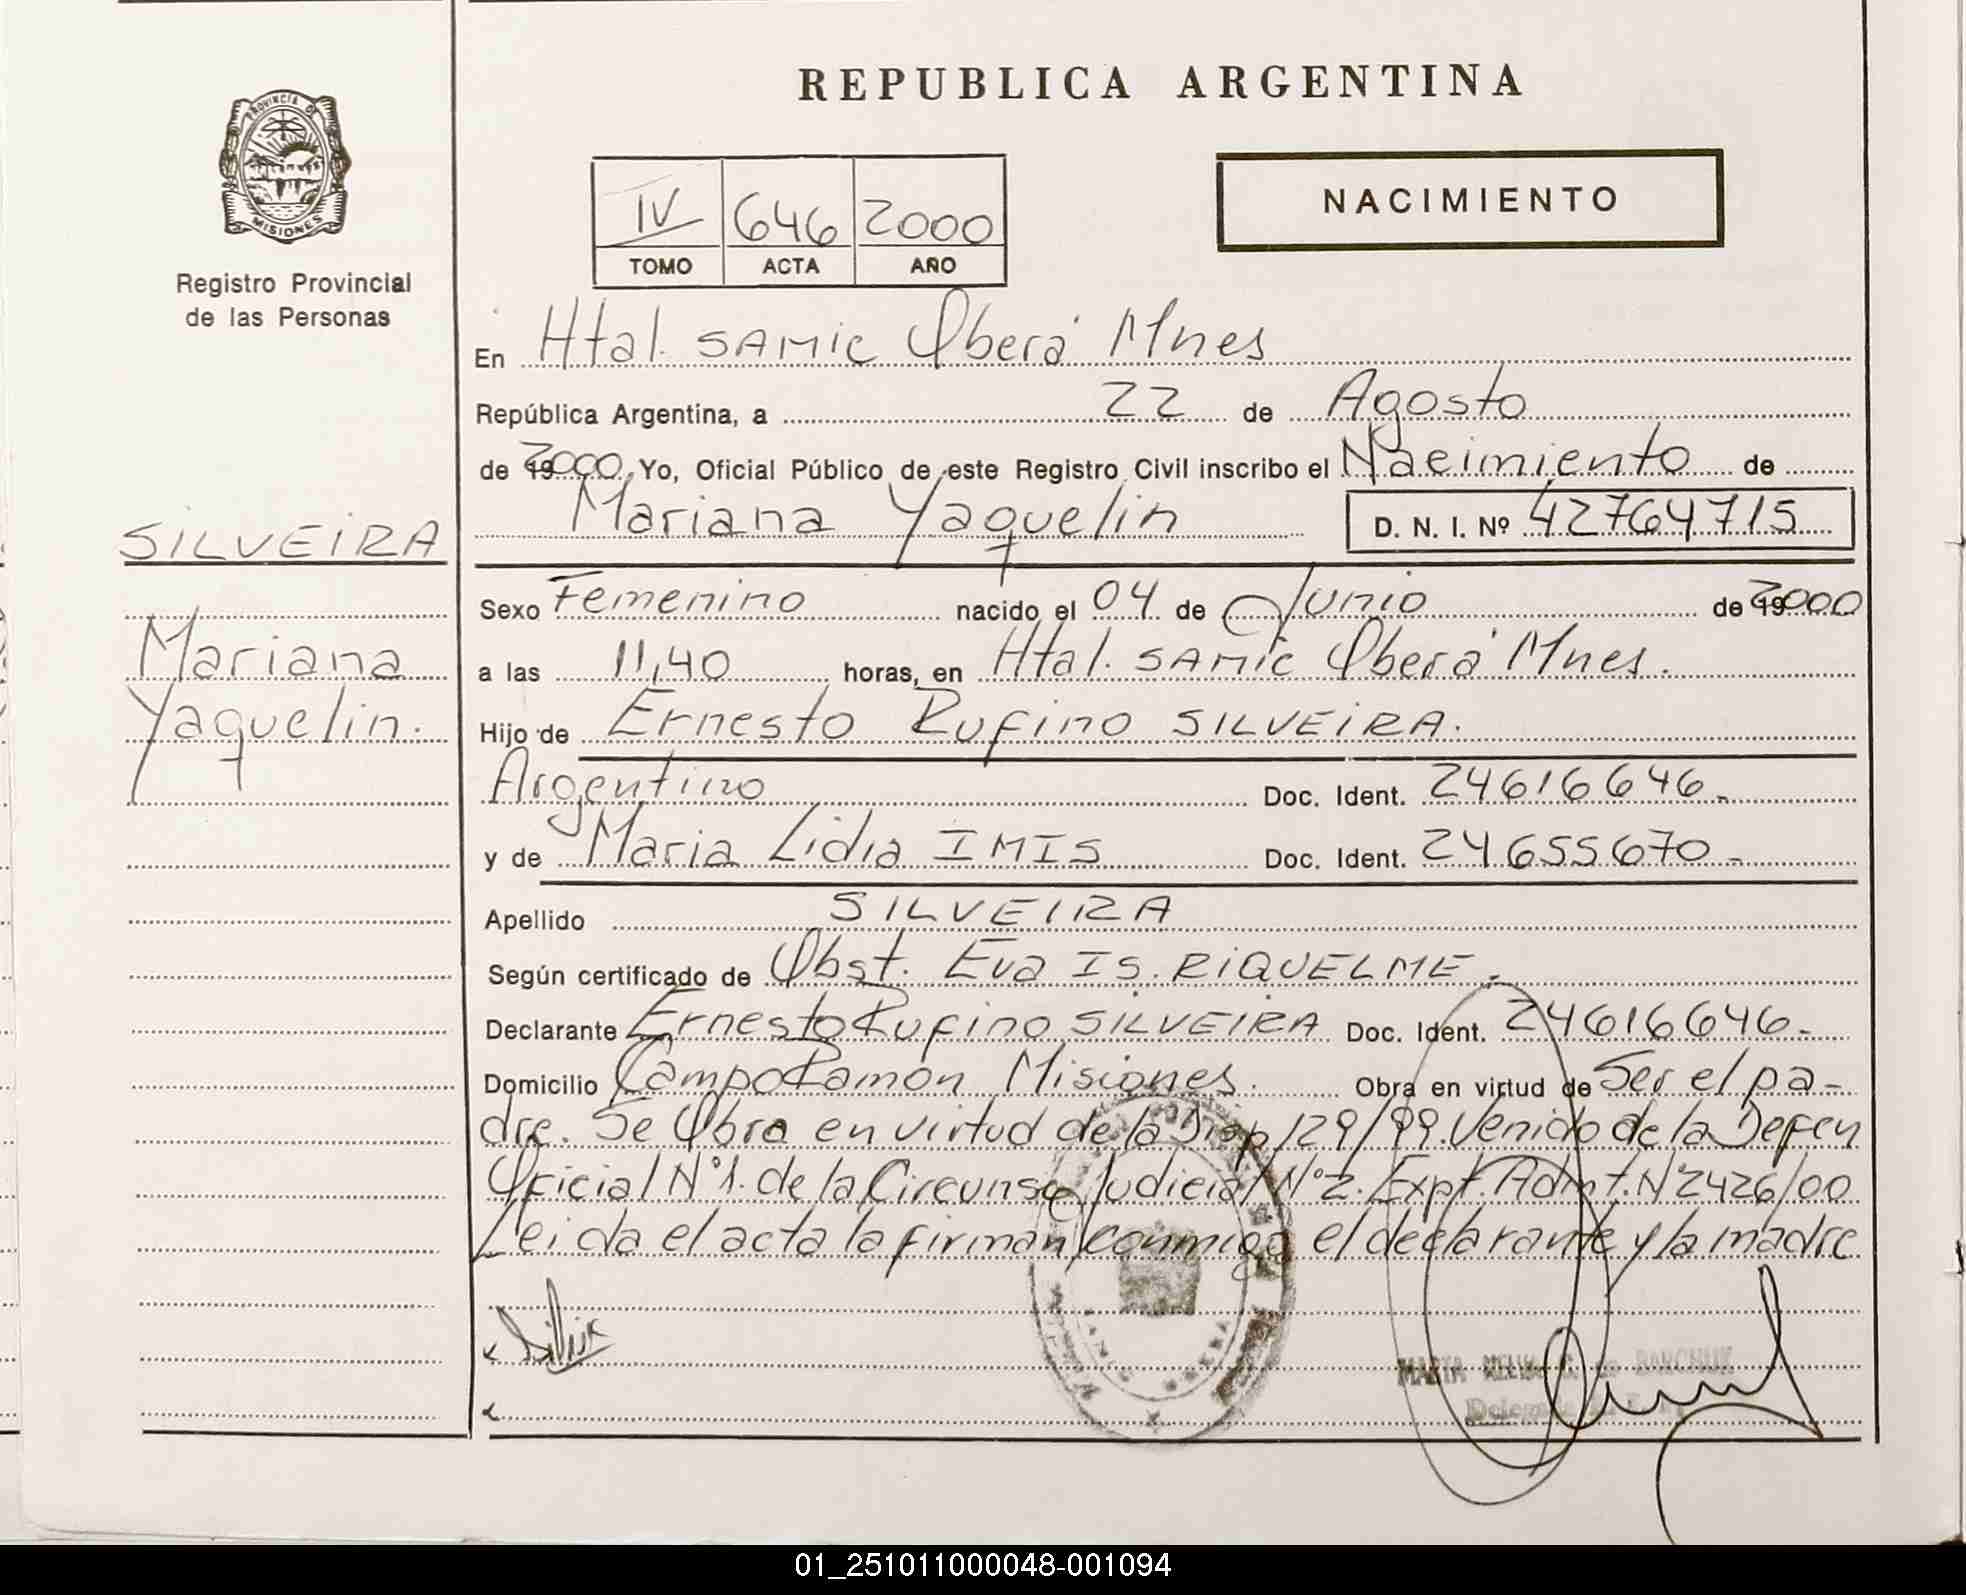 REPUBLICA ARGENTINA
PROVINCIA DE
MISIONES
Registro Provincial
de las Personas
IV 646 2000
TOMO ACTA AÑO
NACIMIENTO
En Htal. SAMIC Oberá Mnes
República Argentina, a 22 de Agosto
de 2000, Yo, Oficial Público de este Registro Civil inscribo el Nacimiento de
Mariana Yaquelin D. N. I. Nº 42764715
SILVEIRA
Mariana
Yaquelin.
Sexo Femenino nacido el 04 de Junio de 2000
a las 11,40 horas, en Htal. SAMIC Oberá Mnes.
Hijo de Ernesto Rufino SILVEIRA.
Argentino Doc. Ident. 24616646.
y de Maria Lidia IMIS Doc. Ident. 24655670.
Apellido SILVEIRA
Según certificado de Obst. Eva Is. RIQUELME.
Declarante Ernesto Rufino SILVEIRA Doc. Ident. 24616646.
Domicilio Campo Ramón Misiones. Obra en virtud de Ser el pa-
dre. Se Obra en virtud de la Disp 129/99. Venido de la Defen
Oficial Nº1. de la Circunsc Judicial Nº2. Expt. Admt. Nº2426/00
Leida el acta la firman conmigo el declarante y la madre
MARTA DE BARCHUK
01_251011000048-001094